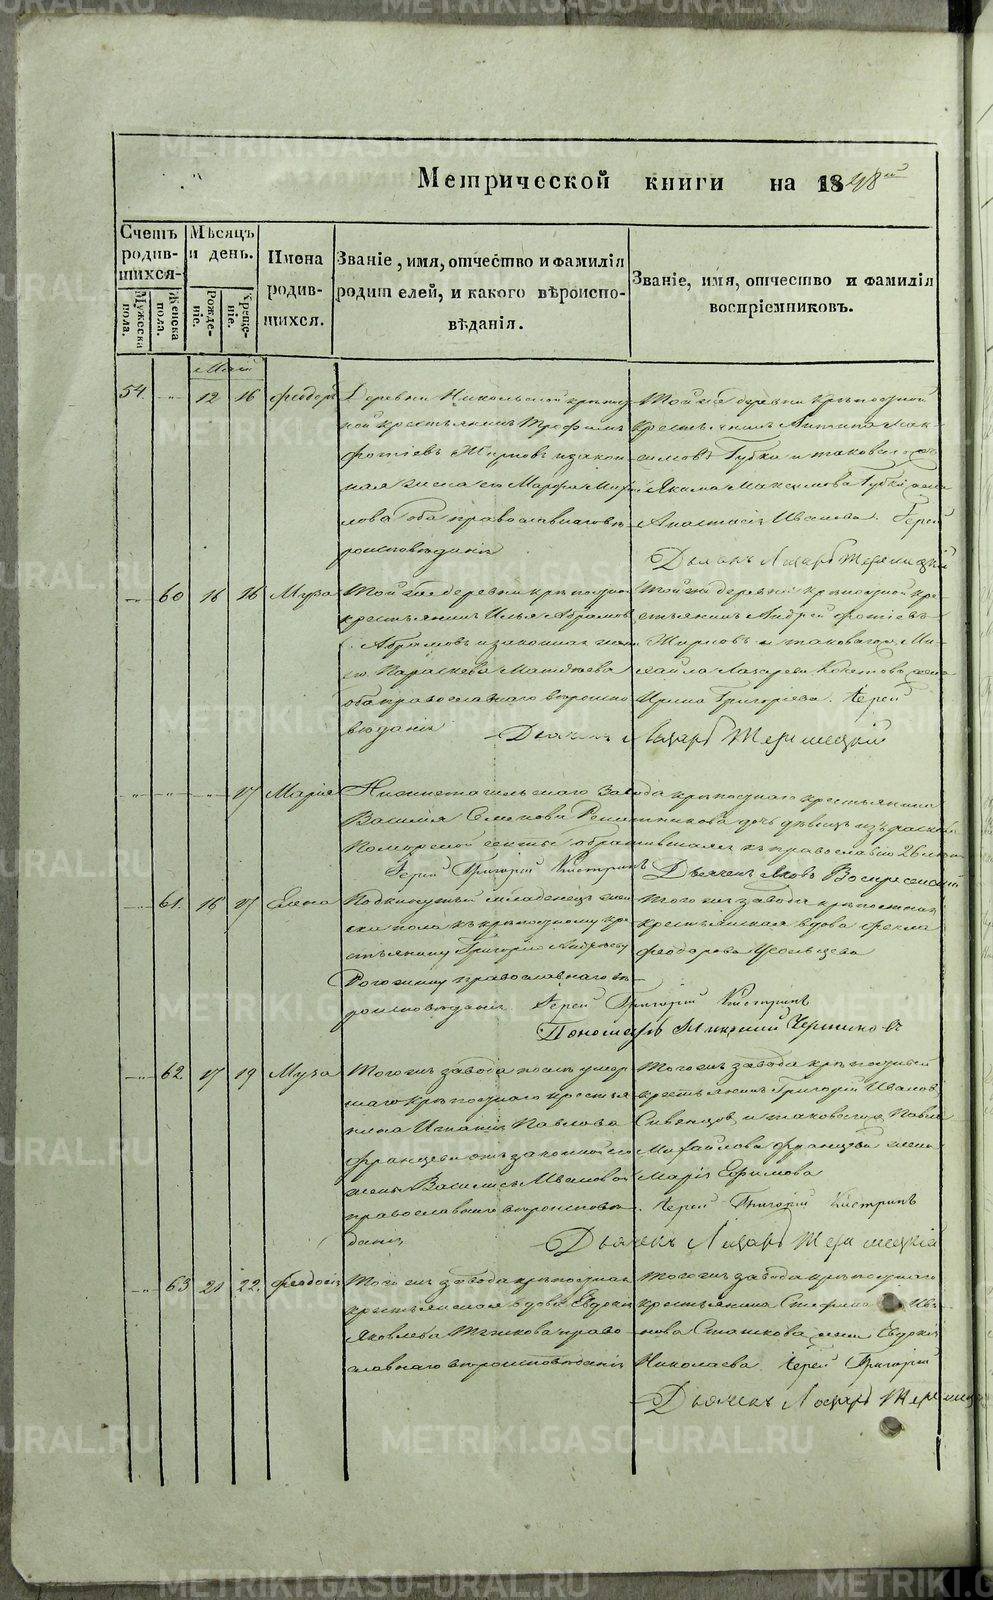 Метрической книги на 1848й
Счетъ родив-шихся.
Мужеска пола.
Женска пола.
Мѣсяцъ и день.
Рожде-ніе.
Креще-ніе.
Имена родив-шихся.
Званіе, имя, отчество и фамилія
родителей, и какого вѣроиспо-
вѣданія.
Званіе, имя, отчество и фамилія
воспріемниковъ.
Май
54. 12 16 Феодоръ
Деревни Никольской крѣпост
ной крестьянинъ Трофимъ
Фотіевъ Жирновъ и закон
ная жена его Марфа
оба православнаго вѣ
роисповѣданія
Той же деревни крѣпостной
крестьянинъ Антипа Мак
симовъ Губка и таковаго
Якима Максимова Губки жена
Анастасія Иванова. Іерей
Дьячекъ Лазарь
60 16 16 Муза
Той же деревни крѣпостной
крестьянинъ Илья Абрамовъ
Абрамовъ и законная жена
его Параскева Матѳѣева
оба православнаго вѣроиспо
вѣданія
Той же деревни крѣпостной кре
стьянинъ Андрей Фотіевъ
Жирновъ и таковаго Ми
хайла Лазарева жена
Ирина Григорьева. Іерей
Дьячекъ Лазарь
17 Марія
Нижнетагильскаго Завода крѣпостнаго крестьянина
Василія Семенова дочь дѣвица изъ раскола
Поморской секты обратившаяся къ православію 26
Іерей Григорій Кистринъ Дьячекъ Яковъ Воскресенскій
61. 16 17 Елена
Подкинутый младенецъ жен
ска пола къ крѣпостному кре
стьянину Григорію Андрееву
Рогожину православнаго вѣ
роисповѣданія.
Того жъ завода крѣпостная
крестьянская вдова Фекла
Феодорова
Іерей Григорій Кистринъ
Пономарь
62 17 19 Муза
Того жъ завода послѣ умер
шаго крѣпостнаго крестья
нина Игнатія Павлова
Францева отъ законной его
жены Василисы Ивановой
православнаго вѣроисповѣ
данія
Того жъ завода крѣпостной
крестьянинъ Григорій Ивановъ
Сивенцовъ и таковаго Павла
Михайлова Францева жена
Марія Ефимова
Іерей Григорій Кистринъ
Дьячекъ Лазарь
63 21 22. Феодосія
Того жъ завода крѣпостная
крестьянская вдова Евдокія
Яковлева православ
славнаго вѣроисповѣданія
Того жъ завода крѣпостнаго
крестьянина Стефана Ива
нова Сташкова жена Евдокія
Николаева. Іерей Григорій
Дьячекъ Лазарь
METRIKI.GASO-URAL.RU